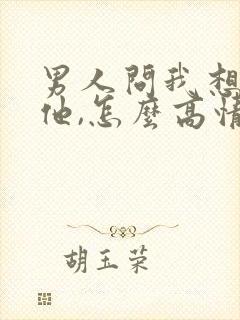 男人問我想
他,怎麼高情
胡玉荣